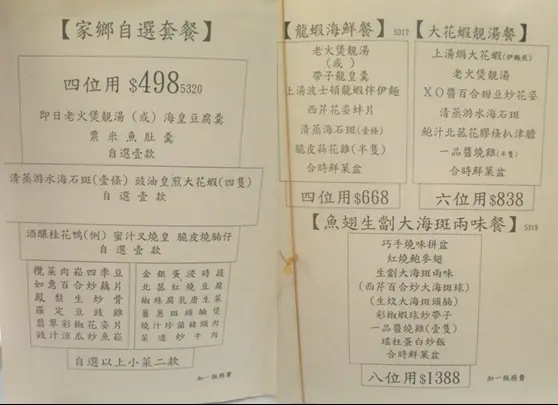 【家鄉自選套餐】
四位用 $498 5320
即日老火煲靚湯 (或) 海皇豆腐羹
粟米魚肚羹
自選壹款
清蒸游水海石斑(壹條) 豉油皇煎大花蝦(四隻)
自選壹款
酒釀桂花鴨(例) 蜜汁叉燒皇 脆皮燒腩仔
自選壹款
欖菜肉崧四季豆
如意百合炒藕片
鳳梨生炒骨
羅定豆豉雞
翡翠彩椒花姿片
豉汁涼瓜炒魚崧
金銀蛋浸時蔬
北菇紅燒豆腐
椒絲腐乳唐生菜
薑蔥斑頭腩煲
燒汁珍菌豬頸肉
菜遠炒牛肉
自選以上小菜二款
加一服務費
【龍蝦海鮮餐】 5017
老火煲靚湯
(或)
帶子龍皇羹
上湯波士頓龍蝦伴伊麵
西芹花姿蚌片
清蒸海石斑(壹條)
脆皮蒜花雞(半隻)
合時鮮菓盆
四位用$668
【大花蝦靚湯餐】
上湯焗大花蝦(伊麵底)
老火煲靚湯
XO醬百合甜豆炒花姿
清蒸游水海石斑
鮑汁北菇花膠條扒津膽
一品醬燒雞(半隻)
合時鮮菓盆
六位用$838
【魚翅生劏大海斑兩味餐】 5019
巧手燒味拼盆
紅燒鮑參翅
生劏大海斑兩味
(西芹百合炒大海斑球)
(生炆大海斑頭腩)
彩椒蝦球炒帶子
一品醬燒雞(壹隻)
瑤柱蛋白炒飯
合時鮮菓盆
八位用$1388
加一服務費